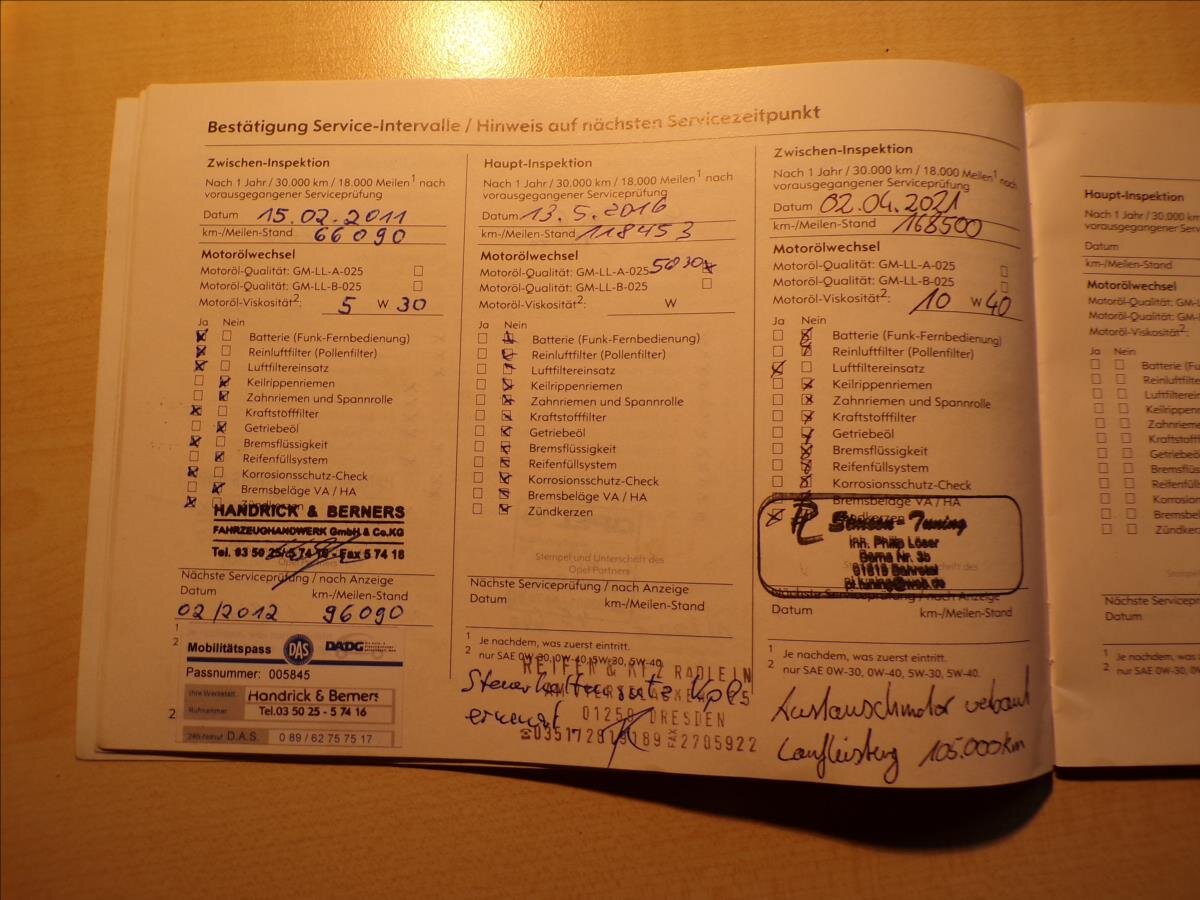 Bestätigung Service-Intervalle / Hinweis auf nächsten Servicezeitpunkt
Zwischen-Inspektion
Nach 1 Jahr / 30.000 km / 18.000 Meilen¹ nach
vorausgegangener Serviceprüfung
Datum 15.02.2011
km-/Meilen-Stand 66090
Motorölwechsel
Motoröl-Qualität: GM-LL-A-025
Motoröl-Qualität: GM-LL-B-025
Motoröl-Viskosität²: 5 W 30
Ja Nein
Batterie (Funk-Fernbedienung)
Reinluftfilter (Pollenfilter)
Luftfiltereinsatz
Keilrippenriemen
Zahnriemen und Spannrolle
Kraftstofffilter
Getriebeöl
Bremsflüssigkeit
Reifenfüllsystem
Korrosionsschutz-Check
Bremsbeläge VA / HA
Zündkerzen
HANDRICK & BERNERS
FAHRZEUGHANDWERK GmbH & Co.KG
Tel. 03 50 25/5 74 16 - Fax 5 74 18
Opel-Partners
Nächste Serviceprüfung / nach Anzeige
Datum km-/Meilen-Stand
02/2012 96090
1
2
Mobilitätspass DAS DADG
Passnummer: 005845
Ihre Werkstatt Handrick & Berners
Rufnummer Tel.03 50 25 - 5 74 16
2
24h-Notruf D.A.S. 0 89 / 62 75 75 17
Haupt-Inspektion
Nach 1 Jahr / 30.000 km / 18.000 Meilen¹ nach
vorausgegangener Serviceprüfung
Datum 13.5.2016
km-/Meilen-Stand 118453
Motorölwechsel
Motoröl-Qualität: GM-LL-A-025 5W30
Motoröl-Qualität: GM-LL-B-025
Motoröl-Viskosität²: W
Ja Nein
Batterie (Funk-Fernbedienung)
Reinluftfilter (Pollenfilter)
Luftfiltereinsatz
Keilrippenriemen
Zahnriemen und Spannrolle
Kraftstofffilter
Getriebeöl
Bremsflüssigkeit
Reifenfüllsystem
Korrosionsschutz-Check
Bremsbeläge VA / HA
Zündkerzen
Stempel und Unterschrift des
Opel-Partners
Nächste Serviceprüfung / nach Anzeige
Datum km-/Meilen-Stand
1 Je nachdem, was zuerst eintritt.
2 nur SAE 0W-30, 0W-40, 5W-30, 5W-40.
REIFEN & KFZ RADLEIN
Steuerkettensatz kpl
erneuert 01259 DRESDEN
Zwischen-Inspektion
Nach 1 Jahr / 30.000 km / 18.000 Meilen¹ nach
vorausgegangener Serviceprüfung
Datum 02.04.2021
km-/Meilen-Stand 168500
Motorölwechsel
Motoröl-Qualität: GM-LL-A-025
Motoröl-Qualität: GM-LL-B-025
Motoröl-Viskosität²: 10 W 40
Ja Nein
Batterie (Funk-Fernbedienung)
Reinluftfilter (Pollenfilter)
Luftfiltereinsatz
Keilrippenriemen
Zahnriemen und Spannrolle
Kraftstofffilter
Getriebeöl
Bremsflüssigkeit
Reifenfüllsystem
Korrosionsschutz-Check
Bremsbeläge VA / HA
Zündkerzen
Tuning
Inh. Philip Löser
Berna Nr. 3b
Bahretal
pl.tuning@web.de
Nächste Serviceprüfung / nach Anzeige
Datum km-/Meilen-Stand
1 Je nachdem, was zuerst eintritt.
2 nur SAE 0W-30, 0W-40, 5W-30, 5W-40.
Austauschmotor verbaut
Laufleistung 105.000km
Haupt-Inspektion
Nach 1 Jahr / 30.000
vorausgegangener Ser
Datum
km-/Meilen-Stand
Motorölwechsel
Motoröl-Qualität: GM-L
Motoröl-Qualität: GM-L
Motoröl-Viskosität²:
Ja Nein
Batterie (Fu
Reinluftfilte
Luftfilterein
Keilrippen
Zahnrieme
Kraftstoff
Getriebeö
Bremsflüs
Reifenfül
Korrosion
Bremsbe
Zündker
Stemp
Nächste Servicepr
Datum
1 Je nachdem, w
2 nur SAE 0W-30